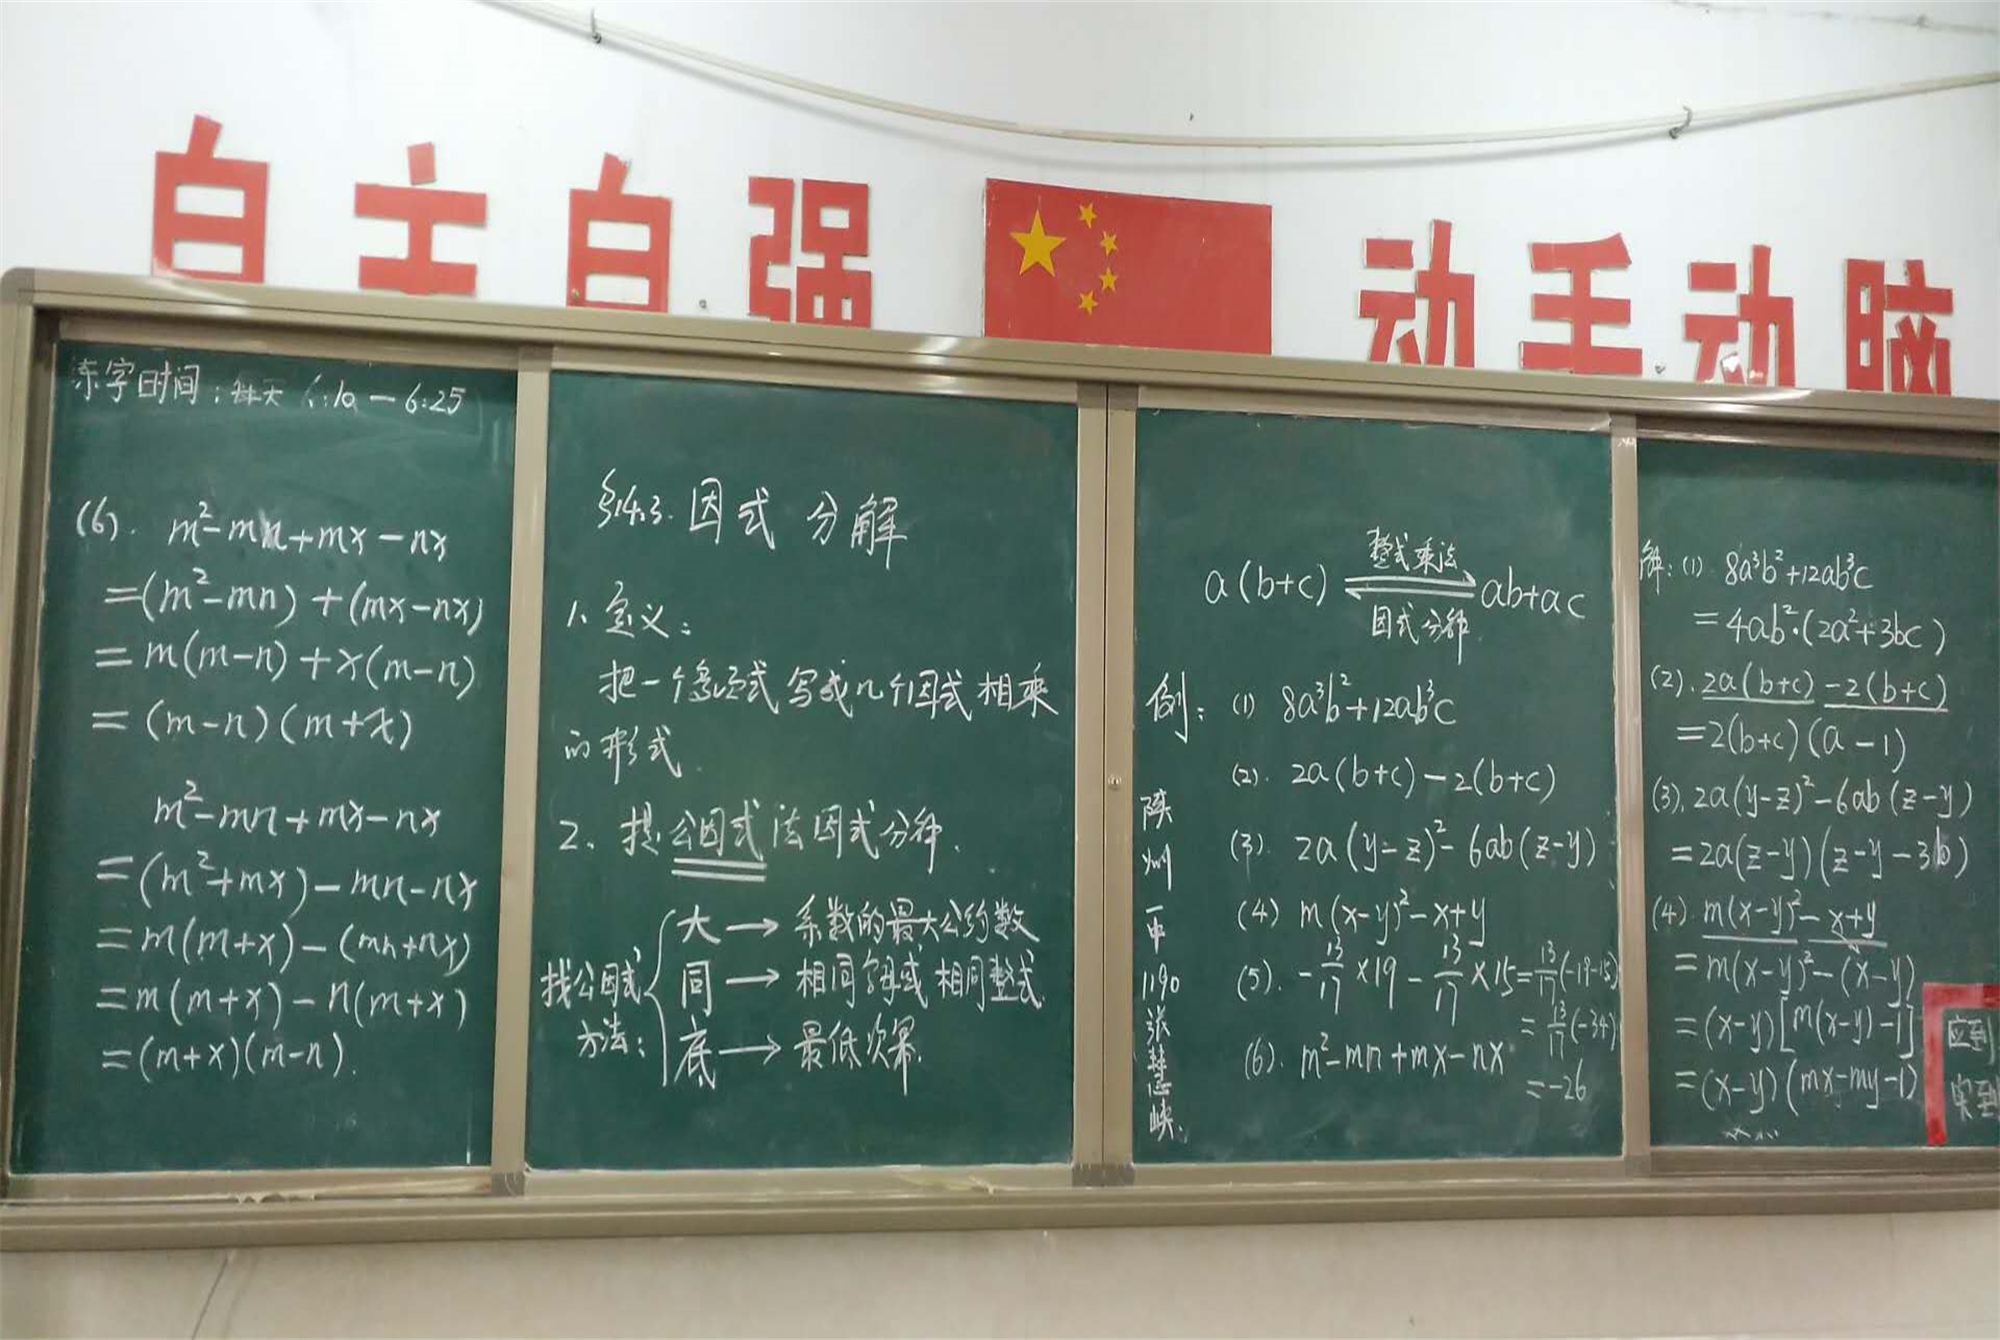 自主自强 动手动脑
练字时间：每天 6:10—6:25
(6). m²-mn+mx-nx
=(m²-mn)+(mx-nx)
=m(m-n)+x(m-n)
=(m-n)(m+x)
m²-mn+mx-nx
=(m²+mx)-mn-nx
=m(m+x)-(mn+nx)
=m(m+x)-n(m+x)
=(m+x)(m-n).
§14.3. 因式分解
1、定义：
把一个多项式写成几个因式相乘
的形式.
2、提公因式法因式分解.
找公因式方法：
大→系数的最大公约数
同→相同字母或相同整式
底→最低次幂.
整式乘法
a(b+c) ⇌ ab+ac
因式分解
例：(1) 8a³b²+12ab³c
(2). 2a(b+c)-2(b+c)
(3). 2a(y-z)²-6ab(z-y)
(4) m(x-y)²-x+y
(5). -13/17×19-13/17×15=13/17(-19-15)
=13/17(-34)
=-26
(6). m²-mn+mx-nx
陕州一中1190张慧峡.
解：(1) 8a³b²+12ab³c
=4ab²·(2a²+3bc)
(2). 2a(b+c)-2(b+c)
=2(b+c)(a-1)
(3). 2a(y-z)²-6ab(z-y)
=2a(z-y)(z-y-3b)
(4). m(x-y)²-x+y
=m(x-y)²-(x-y)
=(x-y)[m(x-y)-1]
=(x-y)(mx-my-1)
应到
实到